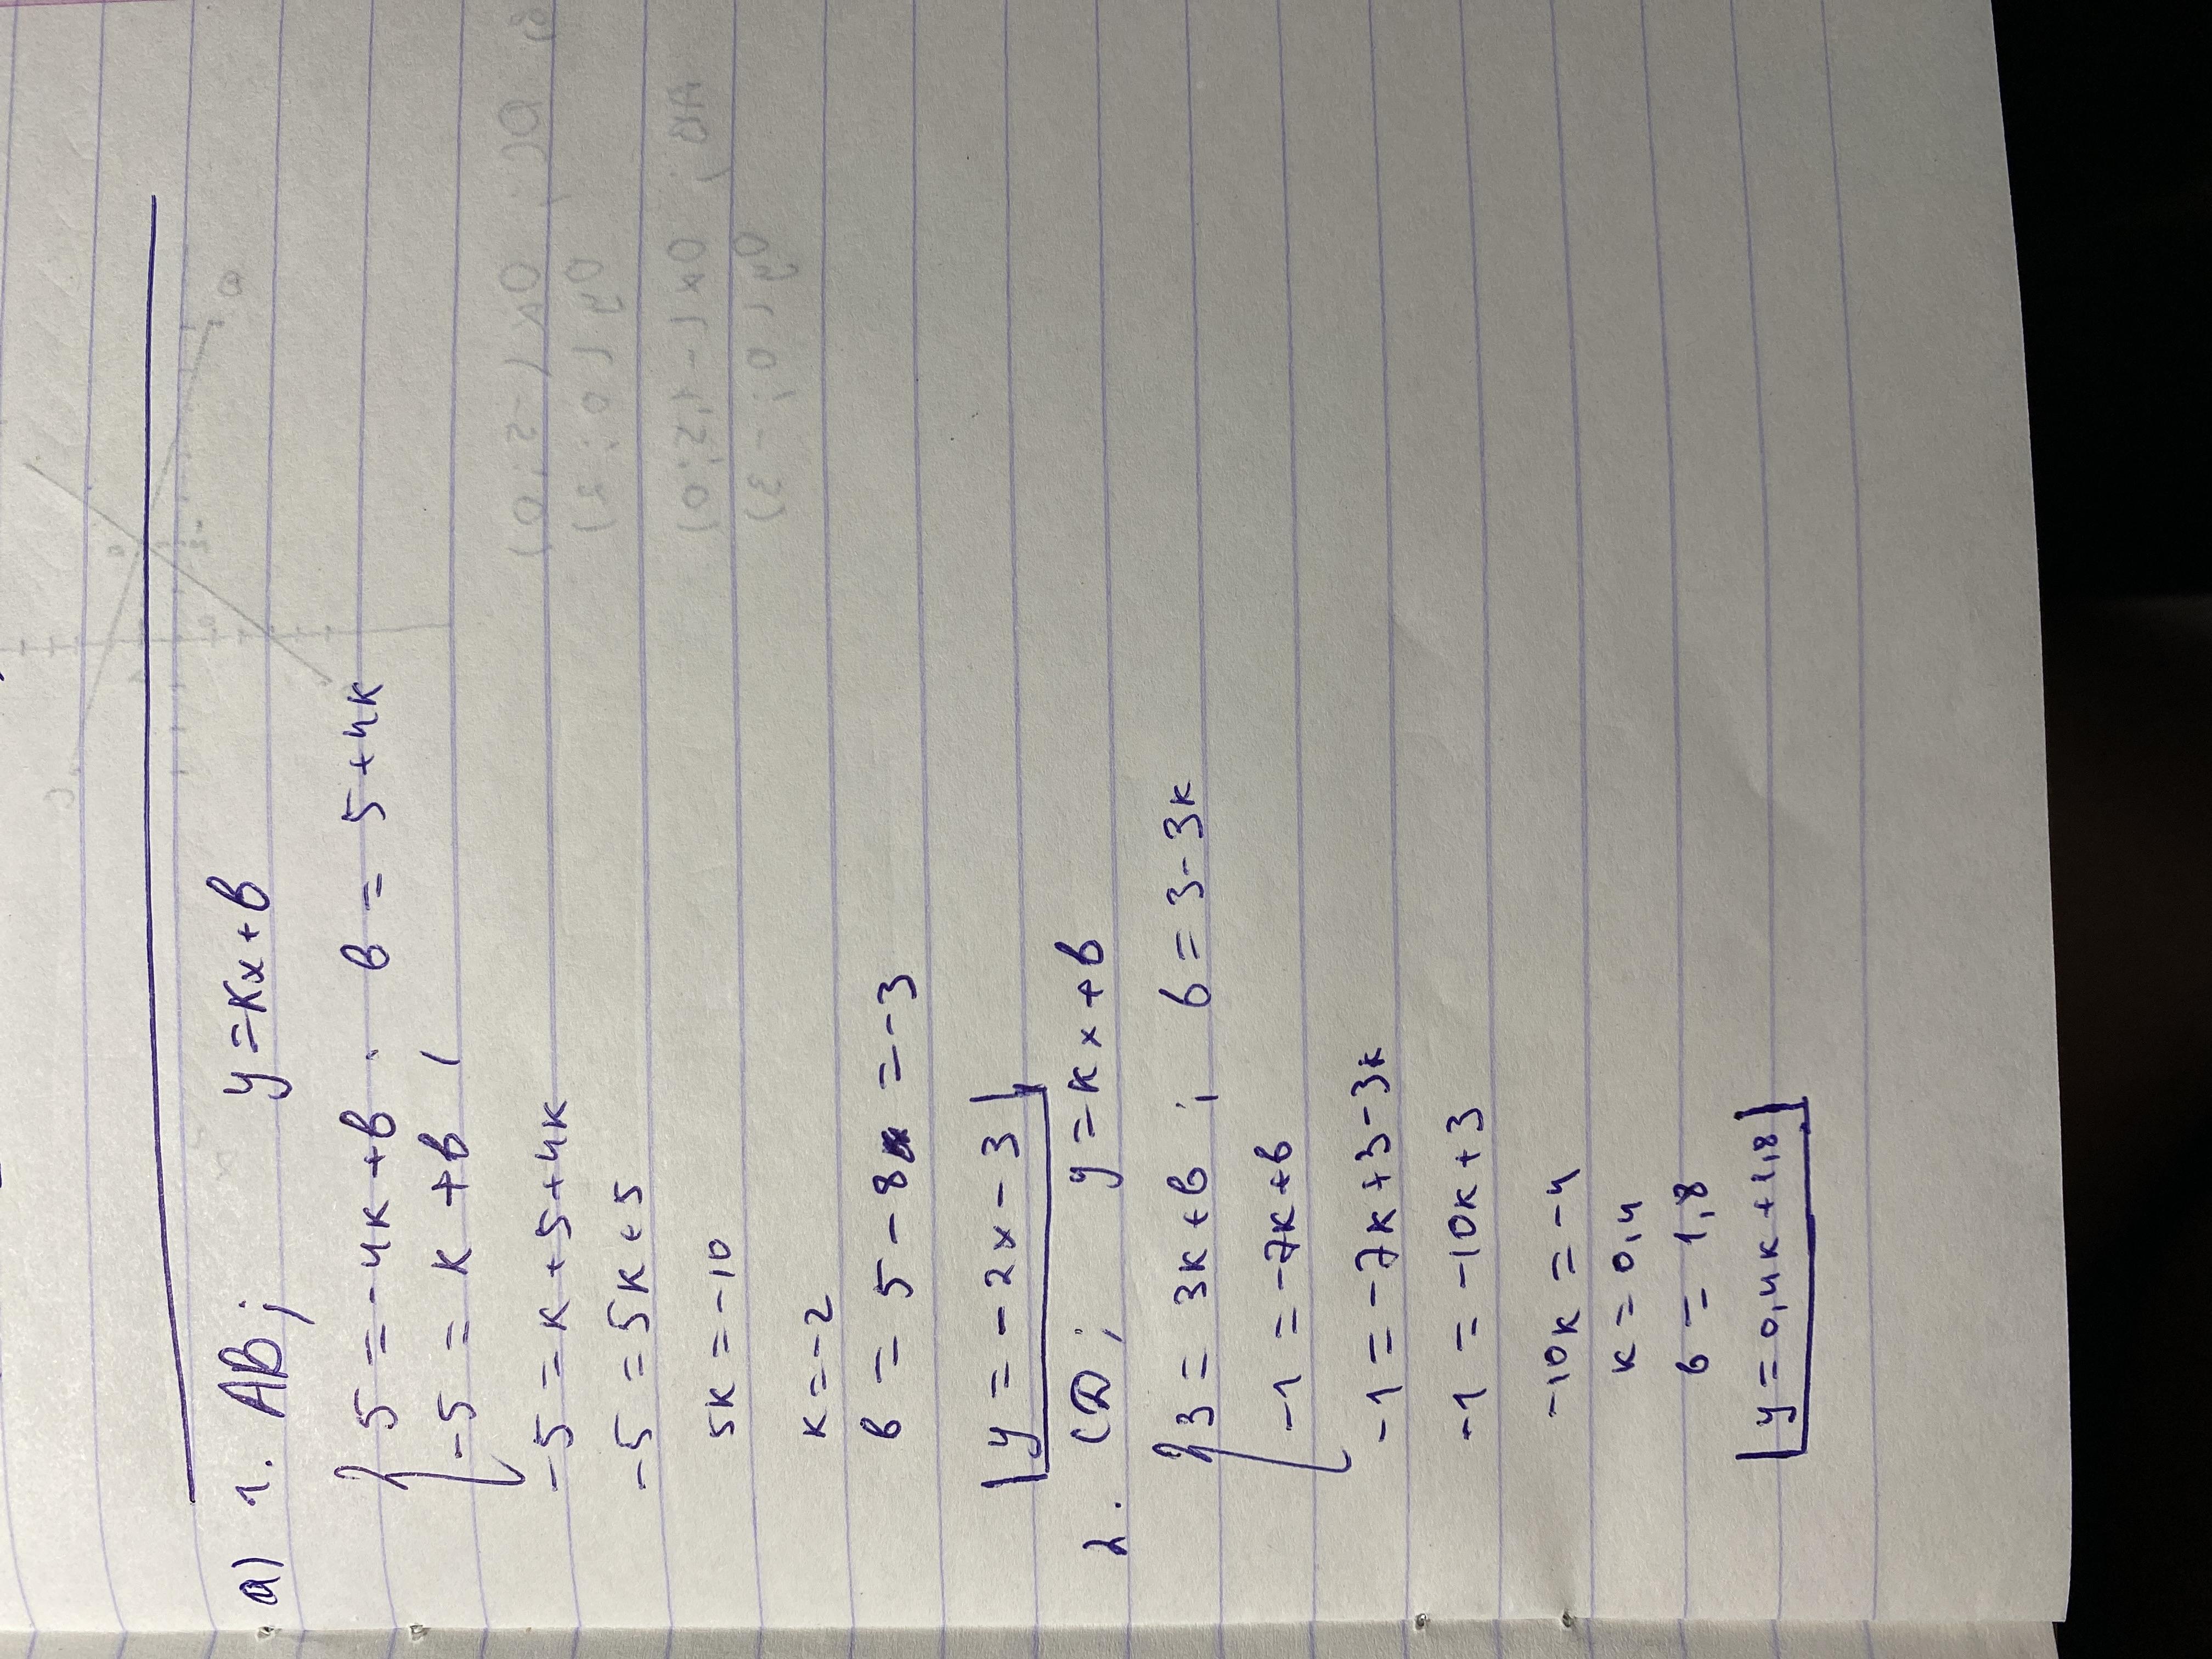 a) 1. AB; y=kx+b
{5 = -4k+b; b = 5+4k
-5 = k+b
-5 = k+5+4k
-5 = 5k+5
5k = -10
k=-2
b = 5-8 = -3
y = -2x-3
2. CD; y=kx+b
{3 = 3k+b; b=3-3k
-1 = -7k+b
-1 = -7k+3-3k
-1 = -10k+3
-10k = -4
k = 0,4
b = 1,8
y = 0,4k+1,8